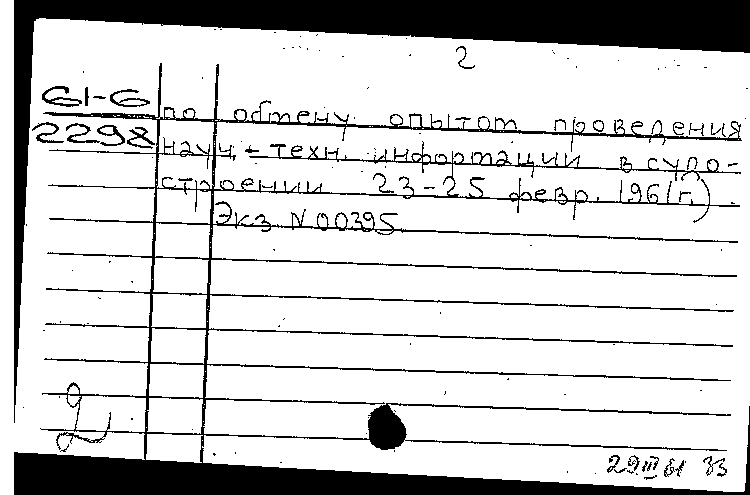 2
61-6
2298
по обмену опытом проведения
науч.-техн. информации в судо-
строении 23-25 февр. 1961г.).
Экз N 00395
2
29 III 61 33